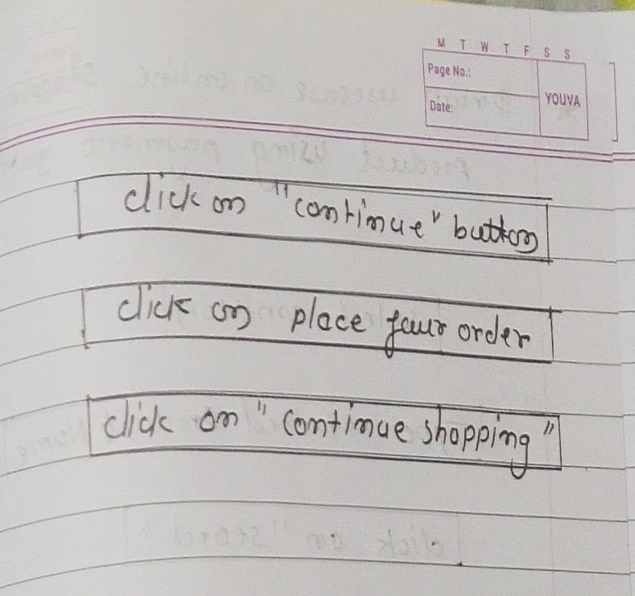 M T W T F S S
Page No.:
Date:
YOUVA
click on "continue" button
click on place your order
click on "continue shopping"